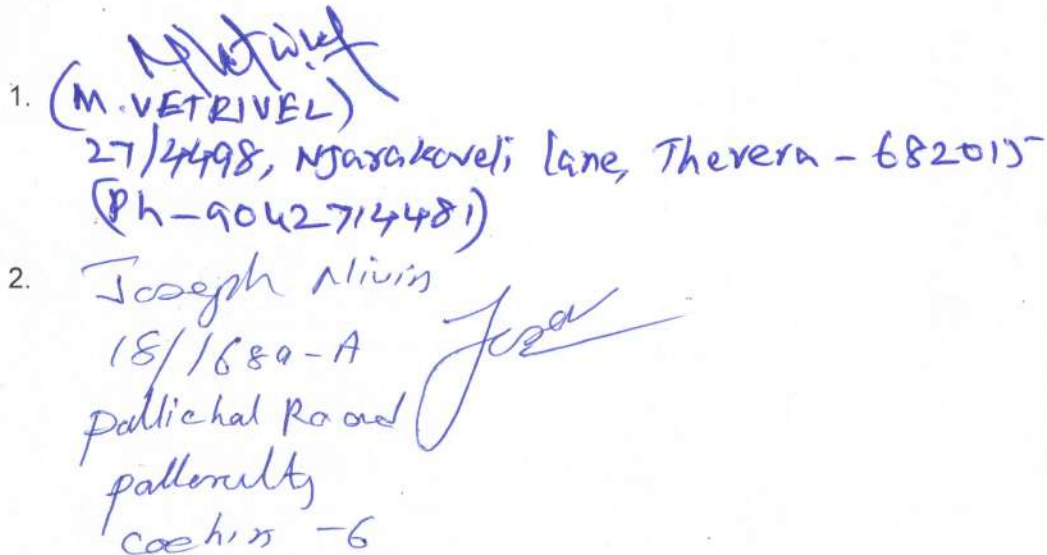 1. (M. VETRIVEL)
27/4498, Njarakaveli lane, Thevera - 682015
(Ph-9042714481)
2. Joseph Nivin
18/1689-A
pallichal Road
palluruthy
cochin -6